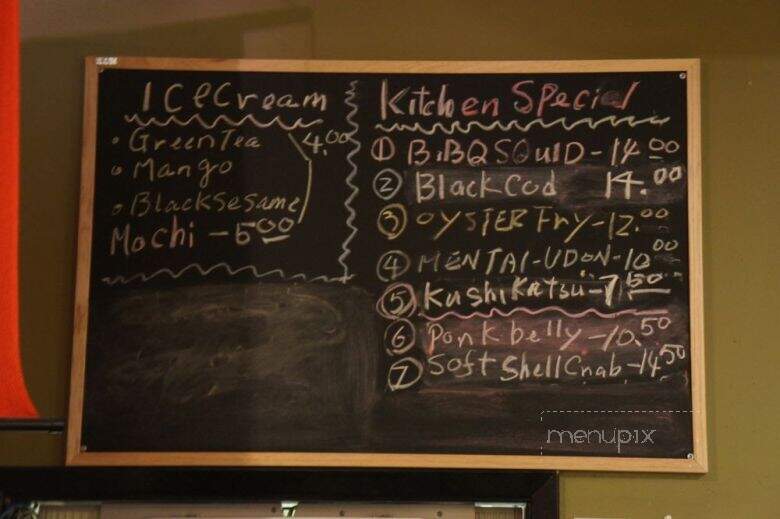 ICeCream
• GreenTea
4.00
• Mango
• BlackSesame
Mochi - 5.00
Kitchen SPecial
① B.BQ SQUID - 14.00
② BlackCod 14.00
③ OYSTER Fry - 12.00
④ MENTAI-UDON - 10.00
⑤ KushiKatsu - 7.50
⑥ Ponkbelly - 10.50
⑦ Soft ShellCnab - 14.50
menupix